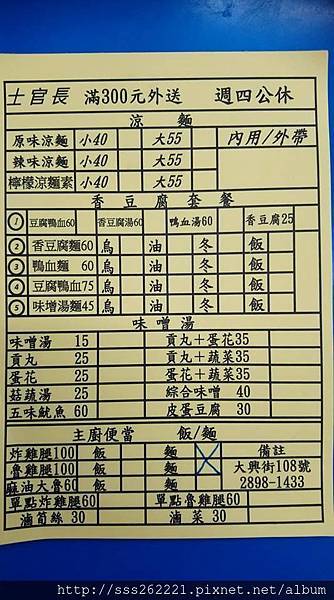 士官長 滿300元外送 週四公休
涼 麵
原味涼麵 小40 大55 內用/外帶
辣味涼麵 小40 大55
檸檬涼麵素 小40 大55
香豆腐套餐
① 豆腐鴨血60 香豆腐湯60 鴨血湯60 香豆腐25
② 香豆腐麵60 烏 油 冬 飯
③ 鴨血麵 60 烏 油 冬 飯
④ 豆腐鴨血75 烏 油 冬 飯
⑤ 味增湯麵45 烏 油 冬 飯
味噌湯
味噌湯 15 貢丸+蛋花35
貢丸 25 貢丸+蔬菜35
蛋花 25 蛋花+蔬菜35
菇蔬湯 25 綜合味噌 40
五味魷魚 60 皮蛋豆腐 30
主廚便當 飯/麵
炸雞腿100 飯 麵 備註
魯雞腿100 飯 麵 大興街108號
麻油大魯60 飯 麵 2898-1433
單點炸雞腿60 單點魯雞腿60
滷筍絲 30 滷 菜 30
http://sss262221.pixnet.net/album